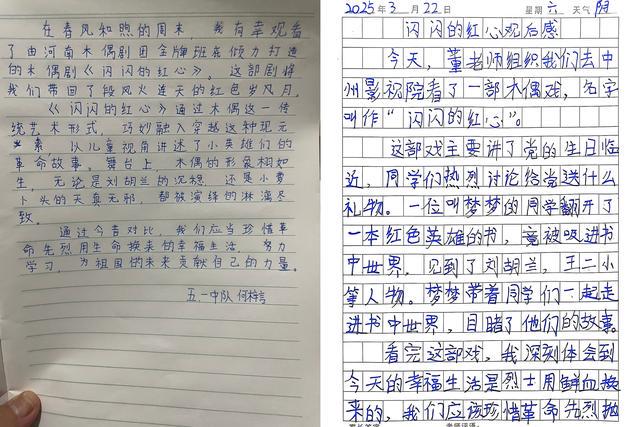 在春风和煦的周末，我有幸观看
了由河南木偶剧团金牌班底倾力打造
的木偶剧《闪闪的红心》。这部剧将
我们带回了段风火连天的红色岁月。
《闪闪的红心》通过木偶这一传
统艺术形式，巧妙融入穿越这种现元
素，以儿童视角讲述了小英雄们的
革命故事。舞台上，木偶的形象栩如
生，无论是刘胡兰的沉稳，还是小萝
卜头的天真无邪，都被演绎的淋漓尽
致。
通过今昔对比，我们应当珍惜革
命先烈用生命换来的幸福生活，努力
学习，为祖国的未来贡献自己的力量。
五.一中队 何梓言
2025年3月22日 星期六 天气阴
闪闪的红心观后感
今天，董老师组织我们去中
州影视院看了一部木偶戏，名字
叫作“闪闪的红心”。
这部戏主要讲了党的生日临
近，同学们热烈讨论给党送什么
礼物。一位叫梦梦的同学翻开了
一本红色英雄的书，竟被吸进书
中世界，见到了刘胡兰，王二小
等人物。梦梦带着同学们一起走
进书中世界，目睹了他们的故事。
看完这部戏，我深刻体会到
今天的幸福生活是烈士用鲜血换
来的，我们应该珍惜革命先烈抛